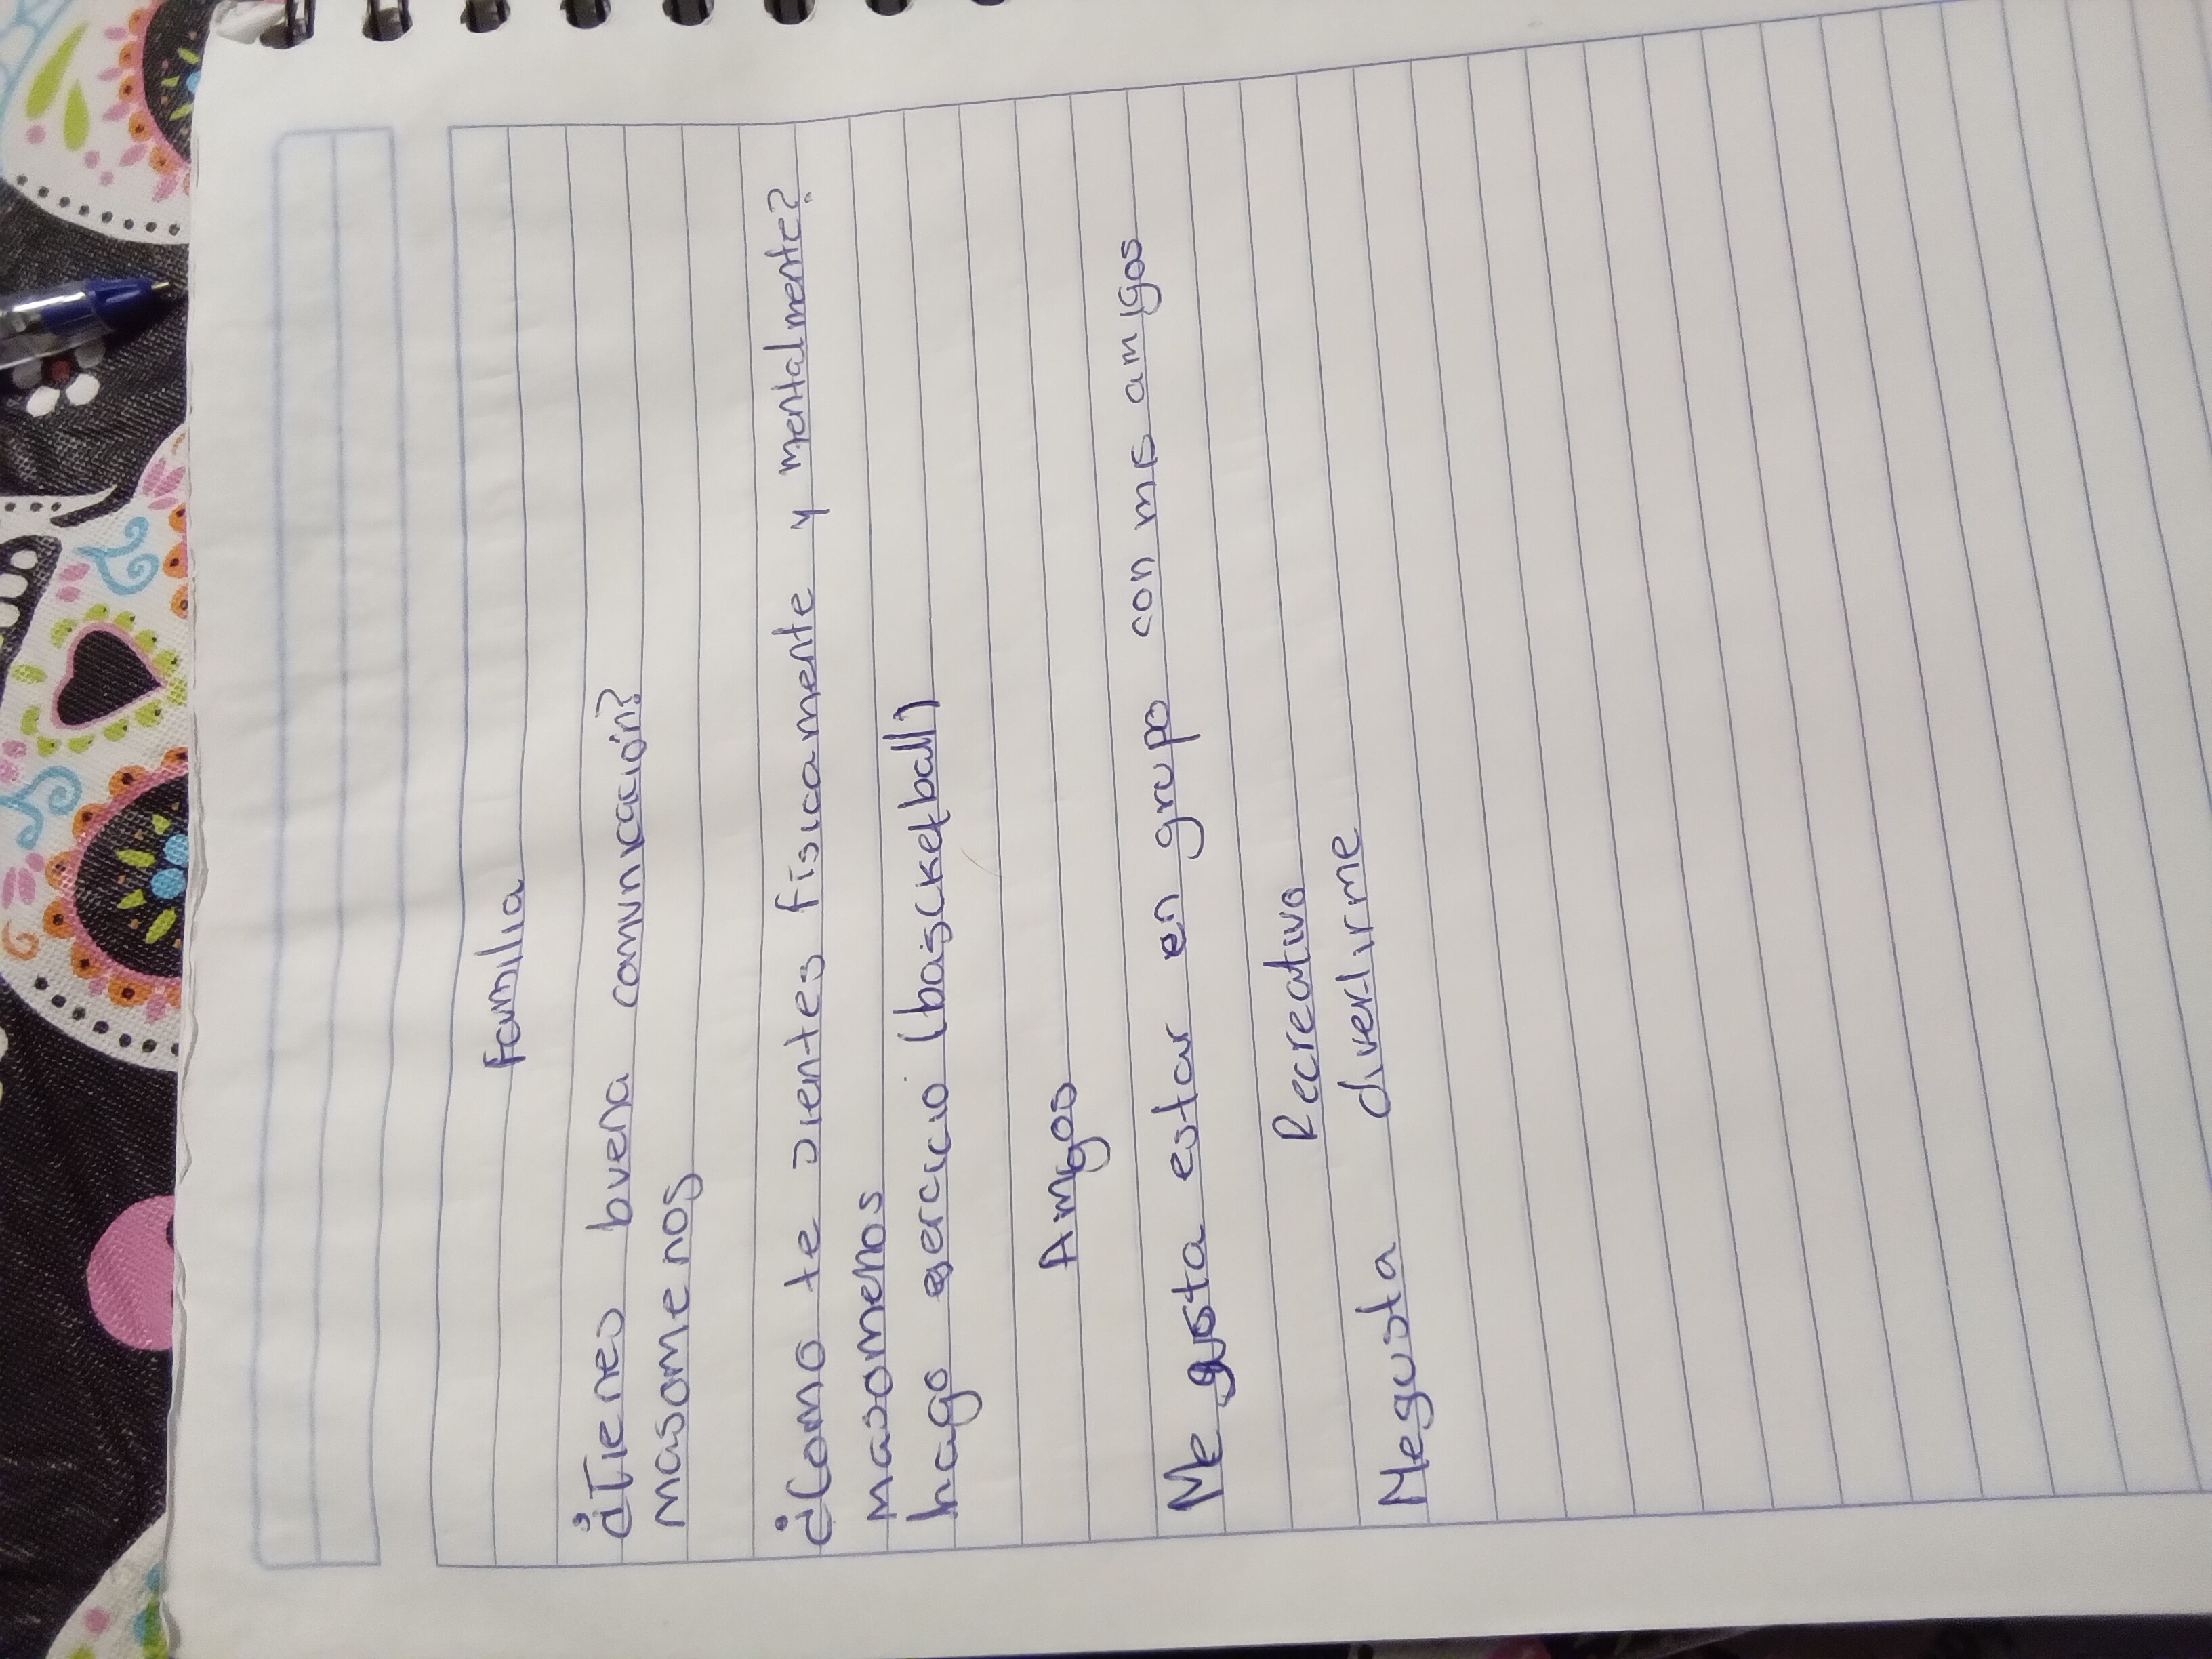 Familia
¿Tienes buena comunicación?
masomenos
¿Como te sientes fisicamente y mentalmente?
masomenos
hago ejercicio (basicketball)
Amigos
Me gusta estar en grupo con mis amigos
Recreativo
Megusta divertirme